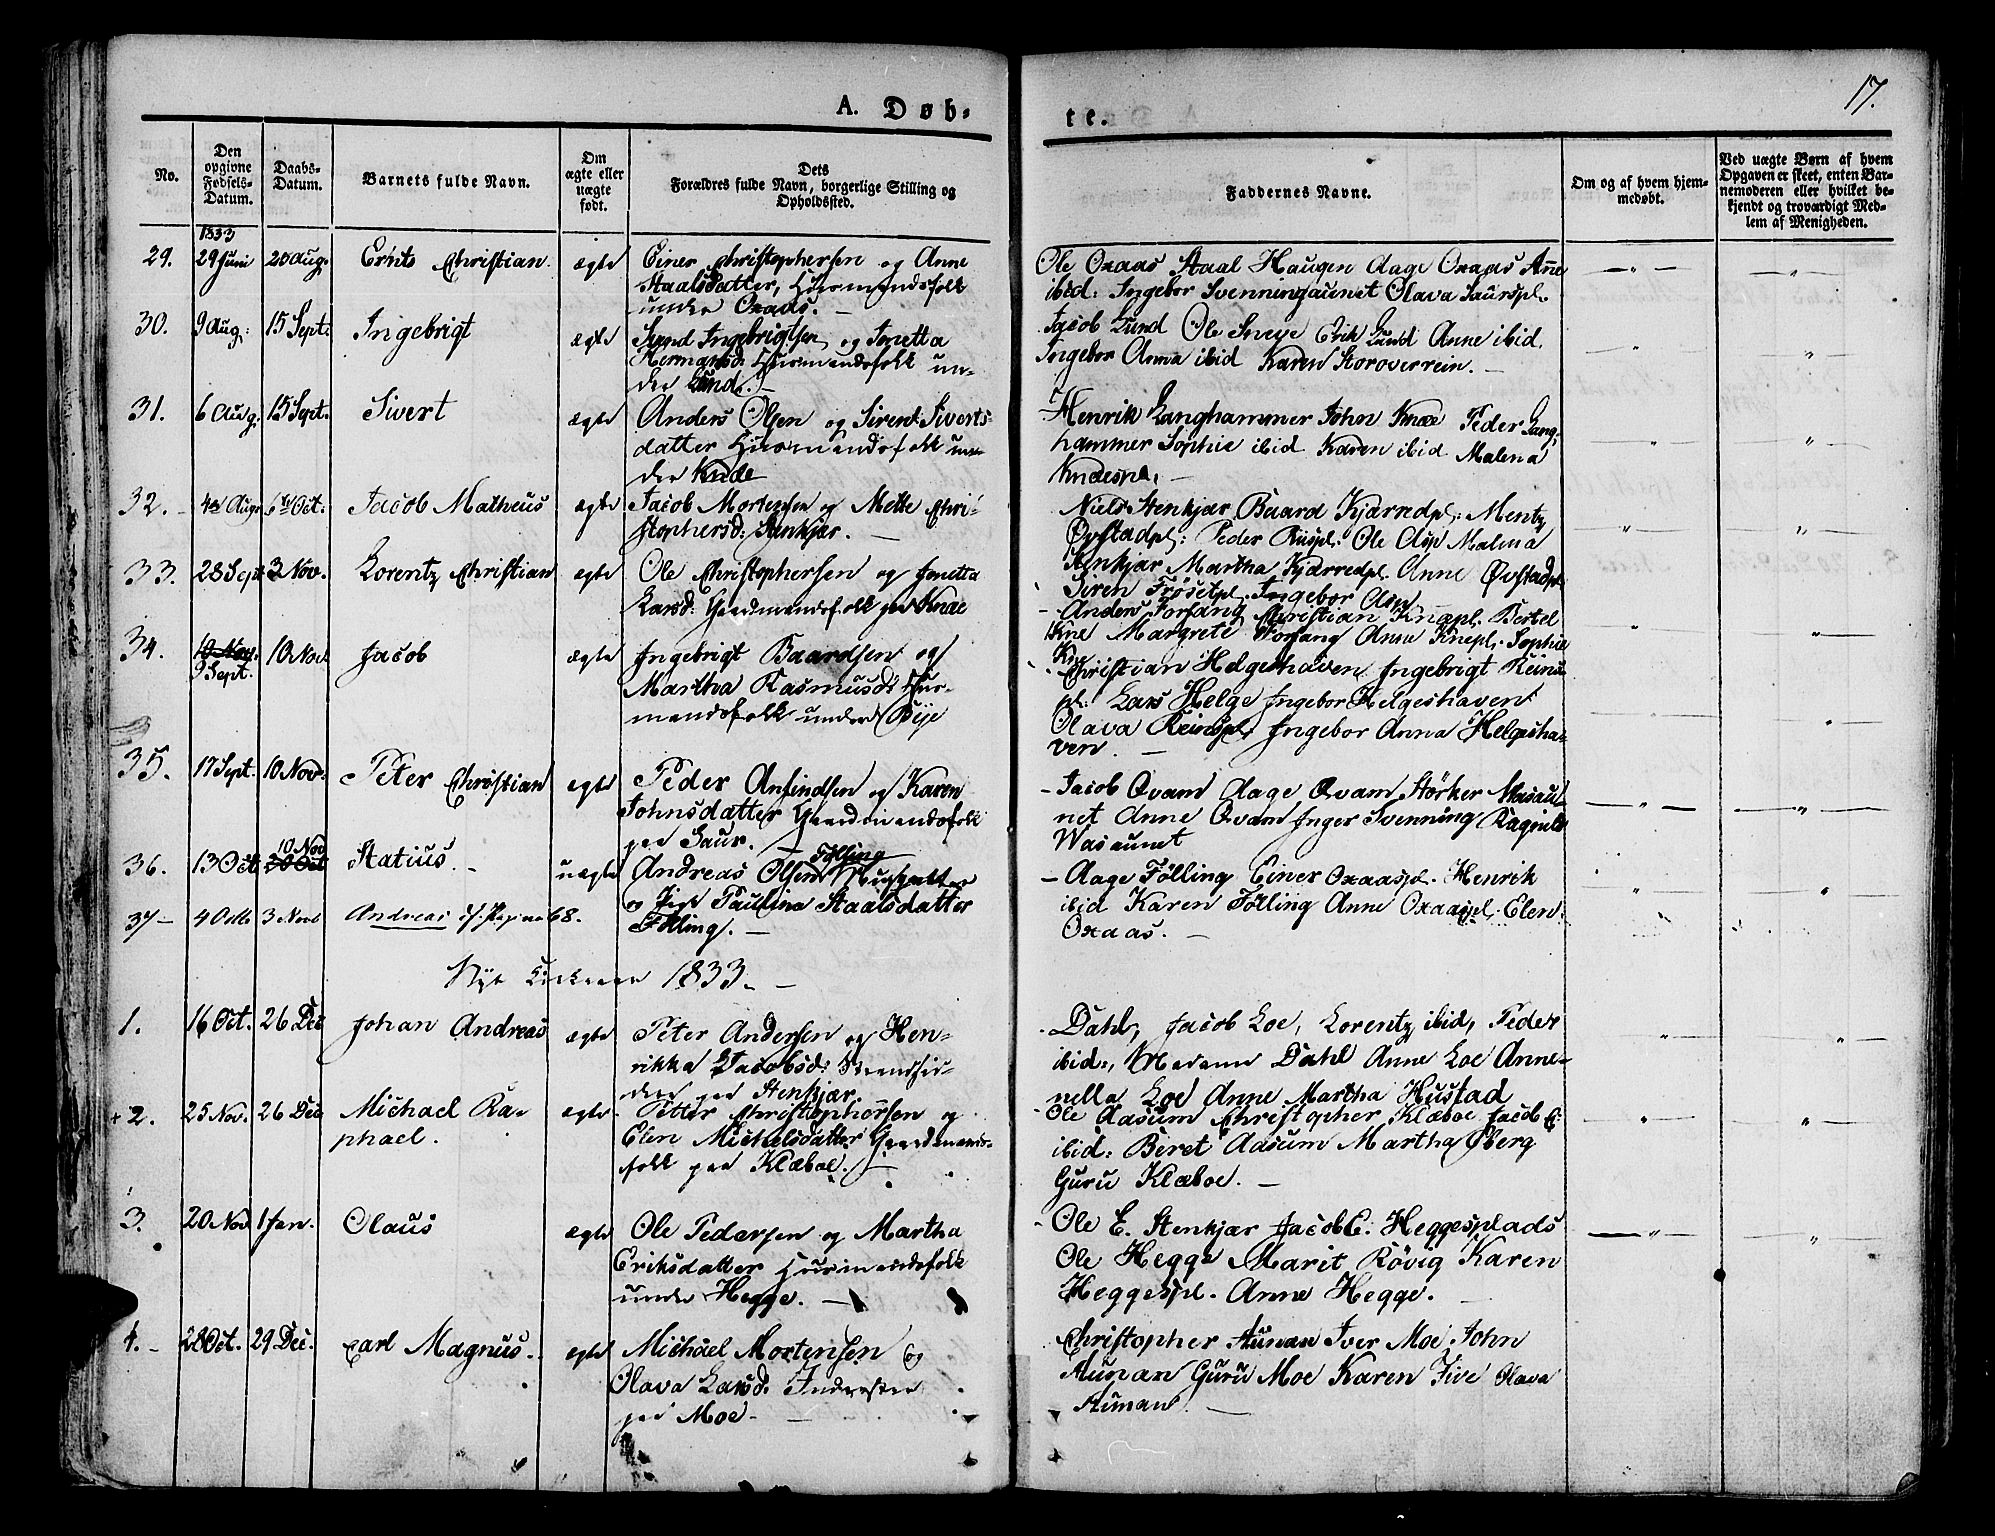 17.
A. Døb-
te.
No.
Den opgivne Fødsels-Datum.
Daabs-Datum.
Barnets fulde Navn.
Om ægte eller uægte født.
Dets Forældres fulde Navn, borgerlige Stilling og Opholdssted.
Faddernes Navne.
Om og af hvem hjem-medøbt.
Ved uægte Børn af hvem Opgaven er skeet, enten Bar-nemoderen eller hvilket be-kjendt og troværdigt Med-lem af Menigheden.
1833
29. 29 Juni 20 Aug. Ernts Christian ægte
Einer Christophersen og Anne
Staalsdatter, Huusmandsfolk
under Oxaas.
Ole Oxaas Staal Haugen Aage Oxaas Anne
ibid: Ingebor Svenningaunet Olava Saurspl.
30. 9 Aug: 15 Sept: Ingebrigt ægte
Svend Ingebrigtsen og Jonetta
Hermansd: Huusmandsfolk un-
der Lund.
Jacob Lund Ole Sneve Erik Lund Anne ibid.
Ingebor Anna ibid Karen Storoverrein.
31. 6 Aug: 15 Sept. Sivert ægte
Anders Olsen og Siren Siverts-
datter Huusmandsfolk un-
der Knde
Henrik Langhammer John Knæe Peder Lang-
hammer Sophie ibid Karen ibid Malena
Knæespl.
32. 4de Aug. 6te Oct. Jacob Matheus ægte
Jacob Mortensen og Mette Chri-
stophersd: Stenkjær.
Niels Stenkjær Baard Kjærredpl: Mentz
Øvstadpl: Peder Ruspl: Ole Asp Malena
Stenkjær Martha Kjærredpl. Anne Øvstadpl
Siren Frøsetpl. Ingebor Asp
33. 28 Sept. 3 Nov. Lorentz Christian ægte
Ole Christophersen og Jonetta
Larsd: Gaardmandsfolk paa Knde
Anders Forfang Christian Knæpl. Bertel
Kne Margrete Forfang Anne Knepl. Sophie
Kne
34. 10 Nov. 9 Sept. 10 Nov. Jacob ægte
Ingebrigt Baardsen og
Martha Rasmusd: Huus-
mandsfolk under Bye
Christian Helgeshaven Ingebrigt Reins-
pl: Lars Helge Ingebor Helgeshaven
Olava Reinspl. Ingebor Anna Helgesha-
ven.
35. 17 Sept. 10 Nov. Peter Christian ægte
Peder Anfindsen og Karen
Johnsdatter Gaardmandsfolk
paa Saur.
Jacob Qvam Aage Qvam Størker Wasau-
net Anne Qvam Inger Svenning Ragnild
Wasaunet
36. 13 Oct. 20 Oct 10 Nov Statius uægte
Andreas Olsen Følling
og Pige Paulina Staalsdatter
Følling.
Aage Følling Einer Oxaaspl. Henrik
ibid Karen Følling Anne Oxaaspl. Elen
Oxaas.
37 4 Octb 3 Novb Andreas s/ Pagina 68.
Nyt Kirkeaar 1833.
1. 16 Oct. 26 Dec Johan Andreas ægte
Peter Andersen og Hen-
rikka Jacobsd: Strandsid-
der paa Stenkjær.
Dahl, Jacob Loe, Lorentz ibid, Peder
ibid:, Madame Dahl Anne Loe Anne-
nella Loe Anne Martha Hustad
2. 25 Nov. 26 Dec Michael Ra-
phael. ægte
Petter Christophersen og
Elen Michelsdatter Gaardmands-
folk paa Klæboe.
Ole Aasum Christopher Klæboe Jacob E:
ibid: Beret Aasum Martha Øberg
Guru Klæboe.
3. 20 Nov 1 Jan. Olaus ægte
Ole Pedersen og Martha
Eriksdatter Huusmandsfolk
under Hegge.
Ole E. Stenkjær Jacob E: Heggesplads
Ole Hegge Marit Røvig Karen
Heggespl. Anne Hegge.
4. 28 Oct. 29 Dec. Carl Magnus ægte
Michael Mortensen og
Olava Larsd. Inderster
paa Moe
Christopher Aunan Iver Moe John
Aunan Guru Moe Karen Five Olava
Aunan